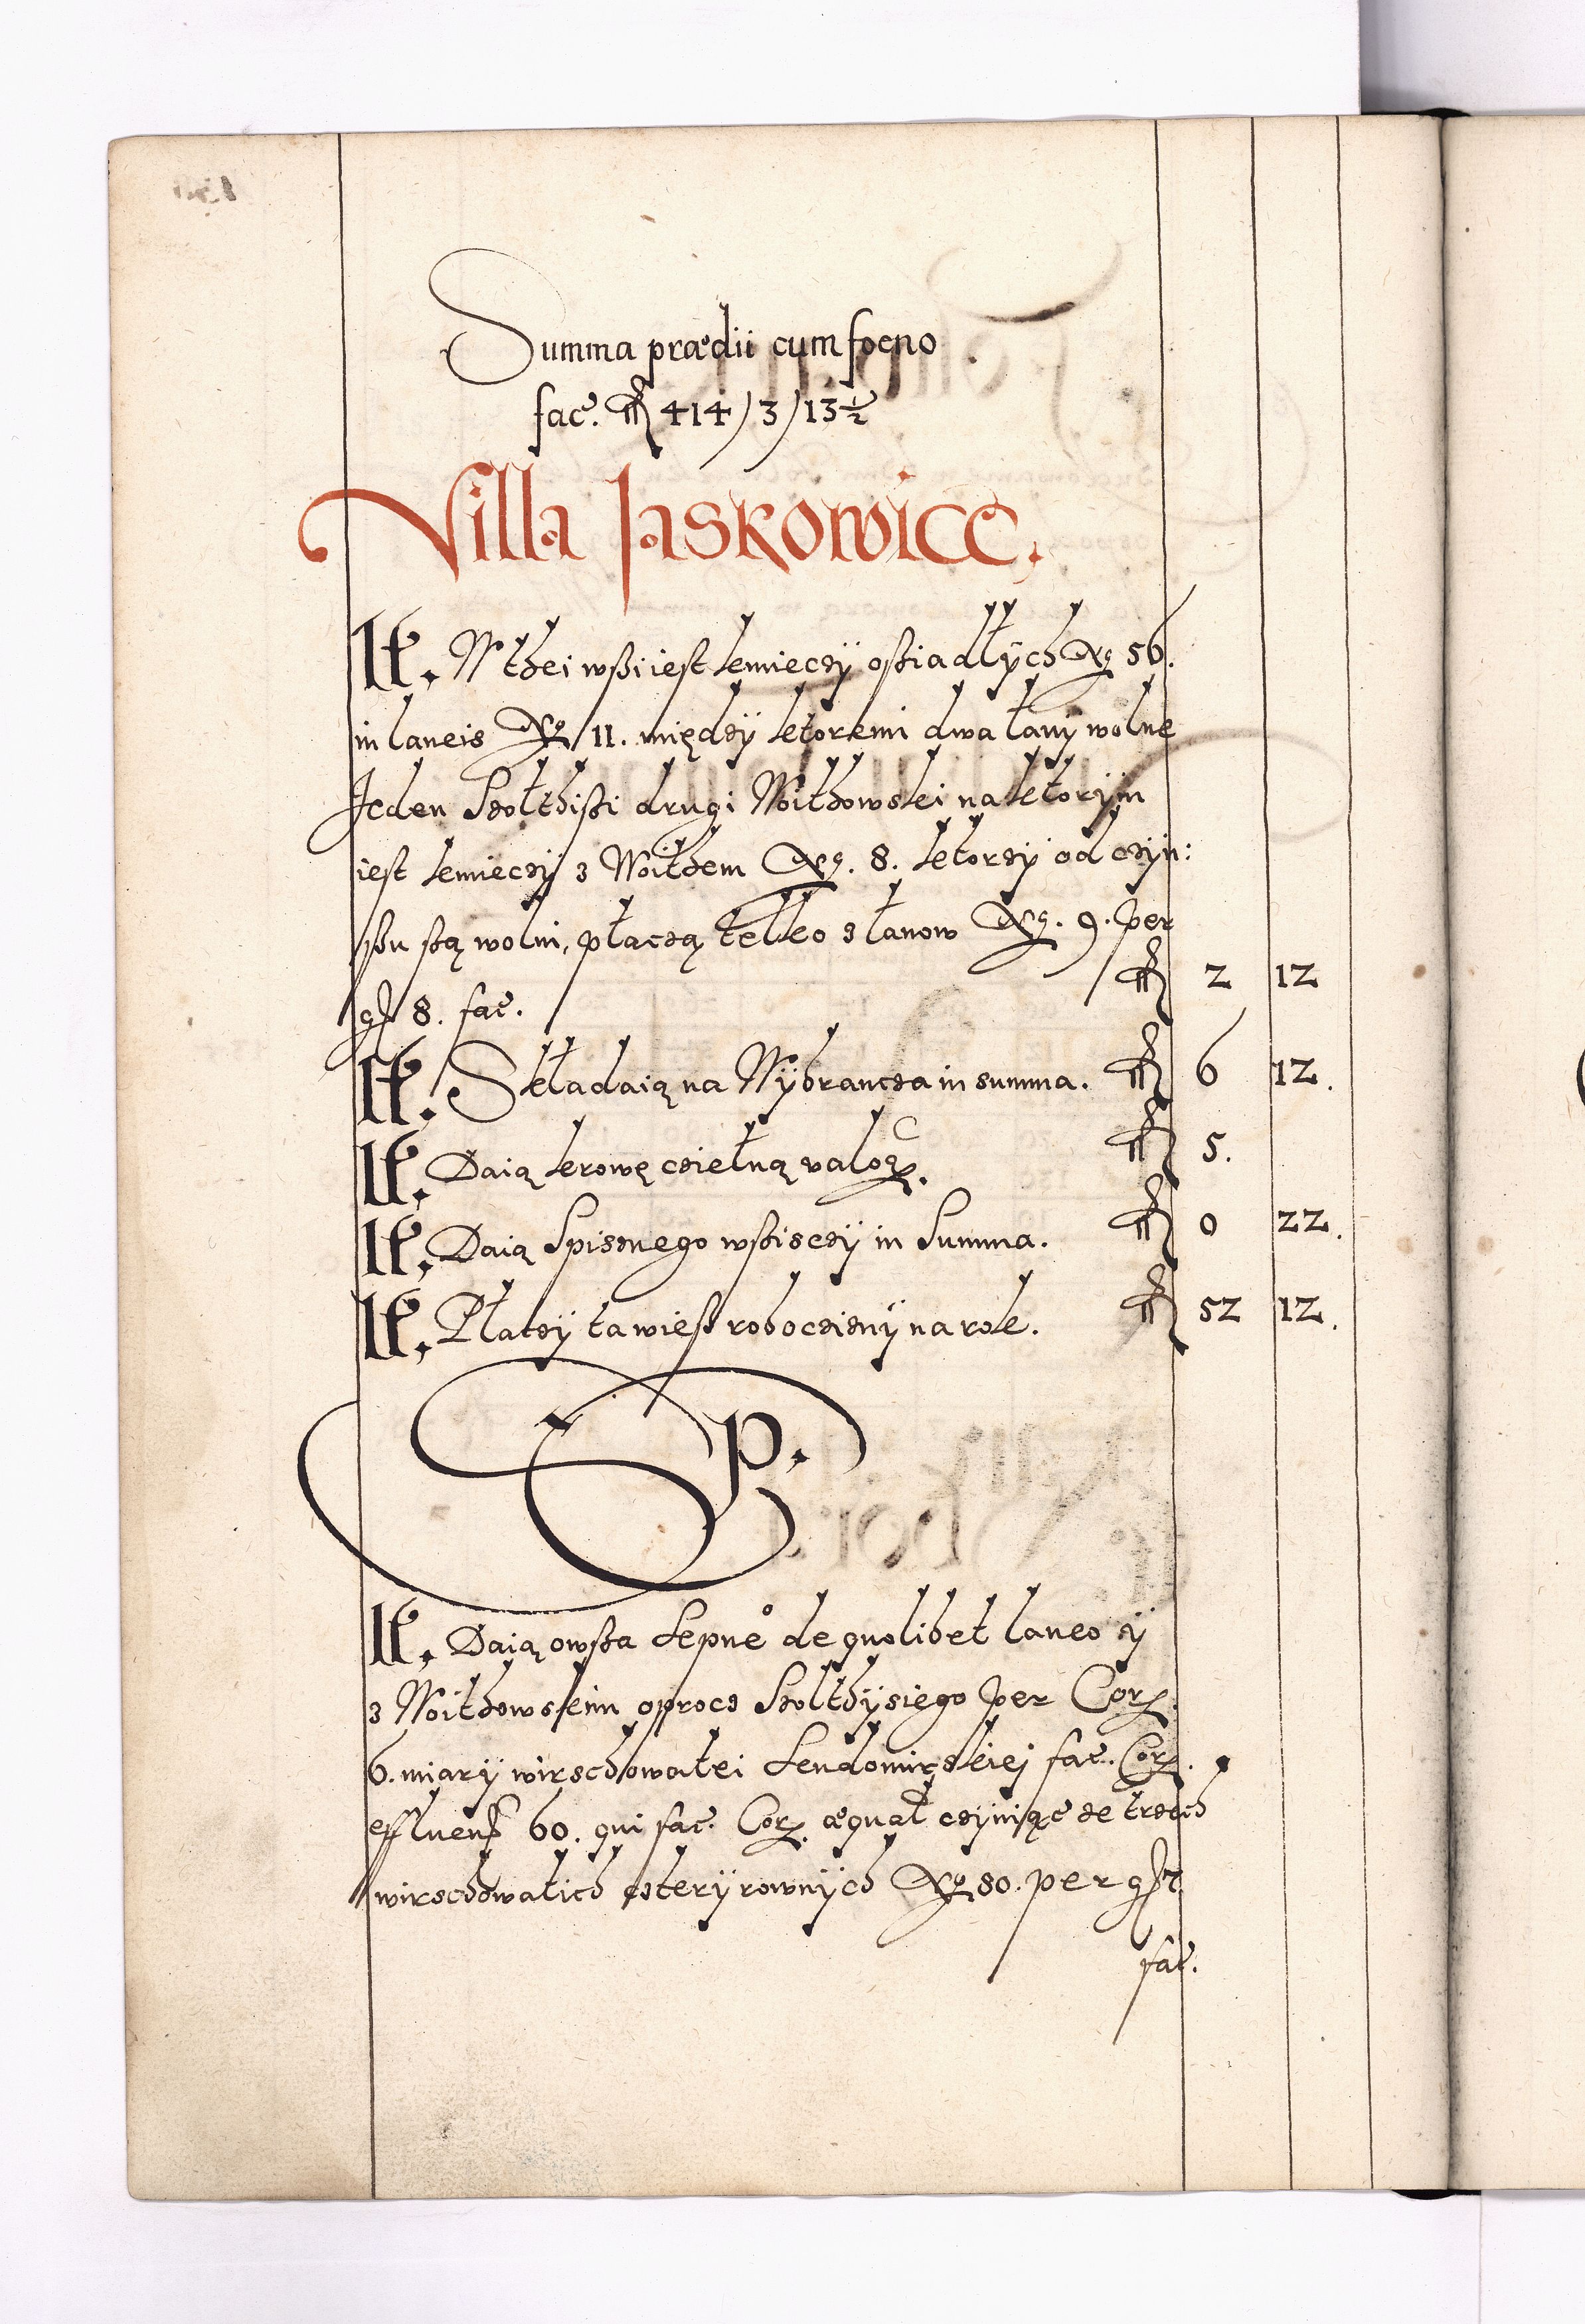 Summa prædii cum foeno
fac̄. fl 414/3/13½
Villa Jaskowice.
It. W thei wsi iest kmieczÿ ossiadłÿch No 56.
in laneis No 11. międzÿ ktoremi dwa łanÿ wolne
Jeden Szołthiski drugi Woithowski na ktorÿm
iest kmieczÿ z Woithem No. 8. ktorzÿ od czÿn:
szu są wolni, płaczą telko z łanow No. 9. per
gr 8. fac̄. fl 2 12
It. Składaią na Wÿbrancza in summa. fl 6 12.
It. Daią krowę czielną valorē. fl 5.
It. Daią Spisnego wssisczÿ in Summa. fl 0 22.
It. Płatzÿ ta wieß roboczisnÿ na rok. fl 52 12.
Sp.
It. Daią owssa sepne de quolibet laneo ÿ
z Woithowskim oprocz Szolthÿsiego per Cor.
6. miarÿ wirzchowatei Sendomirskiej fac̄. Cor.
effluen 60. qui fac̄. Cor. æqual czÿniąc ze trzech
wirzchowatich czterÿ rownÿch No 80. per gr 7.
fac̄.